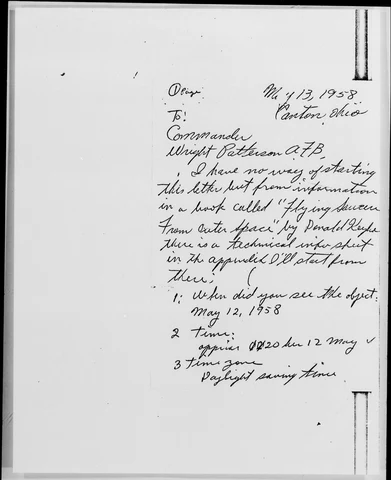 May 13, 1958
Canton, Ohio
To:
Commander
Wright Patterson A.F.B.
I have no way of starting
this letter but from information
in a book called "Flying Saucers
From Outer Space" by Donald
there is a technical info sheet
in the appendix I'll start from
there:
1: When did you see the object:
May 12, 1958
2 Time:
approx 0020 hrs 12 May
3 Time zone
Daylight saving time